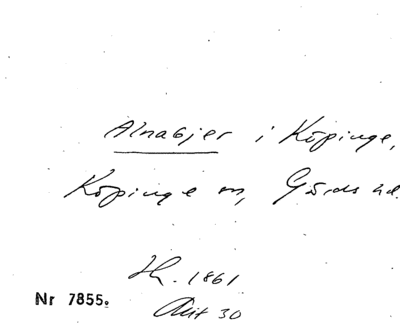 Alnabjer i Köpinge,
Köpinge sn, Gärds hd.
Sk. 1861
Akt 30
Nr 7855.